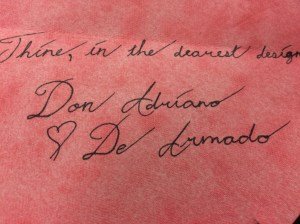 Thine, in the dearest design
Don Adriano
De Armado